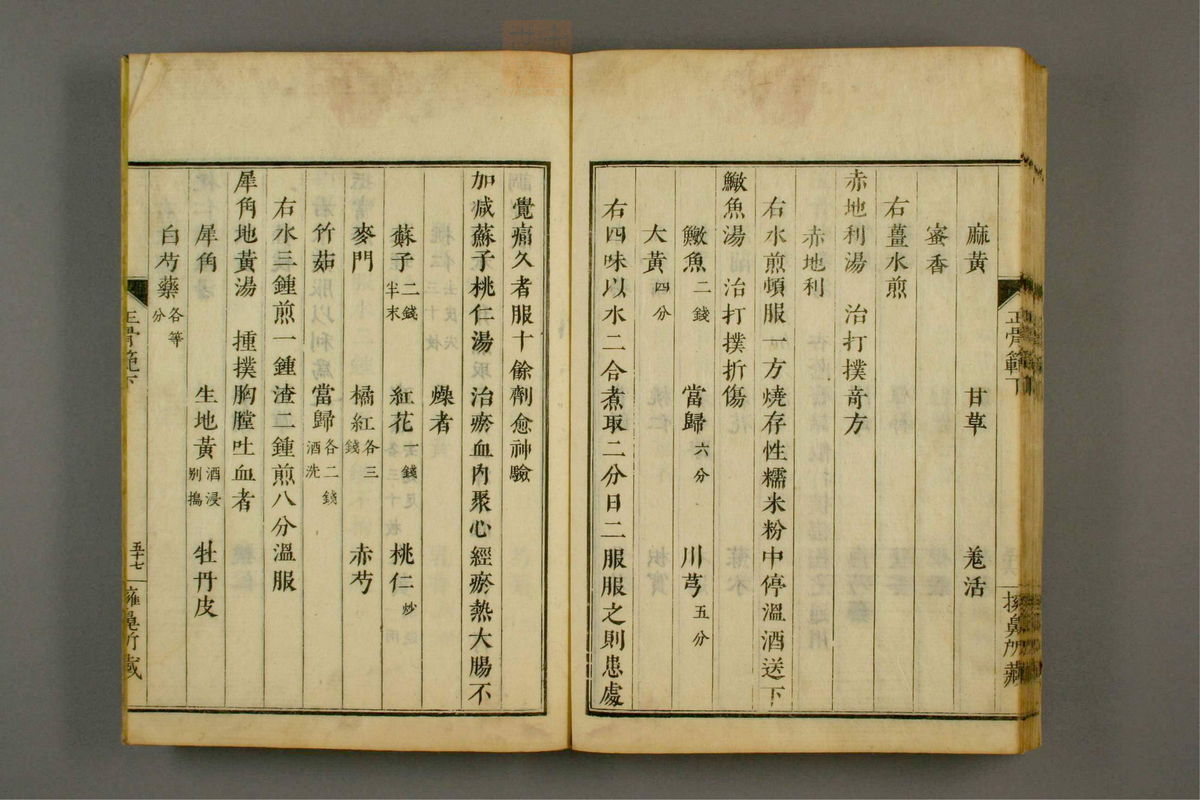 麻黃 甘草 羗活
蜜香
右薑水煎
赤地利湯 治打撲竒方
赤地利
右水煎頓服一方燒存性糯米粉中停溫酒送下
鱖魚湯 治打撲折傷
鱖魚二錢 當歸六分 川芎五分
大黃四分
右四味以水二合煮取二分日二服服之則患處
覺痛久者服十餘劑愈神驗
加减蘇子桃仁湯 治瘀血內聚心經瘀熱大腸不
燥者
蘇子二錢半末 紅花一錢 桃仁炒
麥門 橘紅各三錢 赤芍
竹茹 當歸各二錢酒洗
右水三鍾煎一鍾渣二鍾煎八分溫服
犀角地黃湯 㨂撲胸膛吐血者
犀角 生地黃酒浸别搗 牡丹皮
白芍藥各等分
正骨範下
五十七
擁鼻所藏
正骨範下
擁鼻所藏